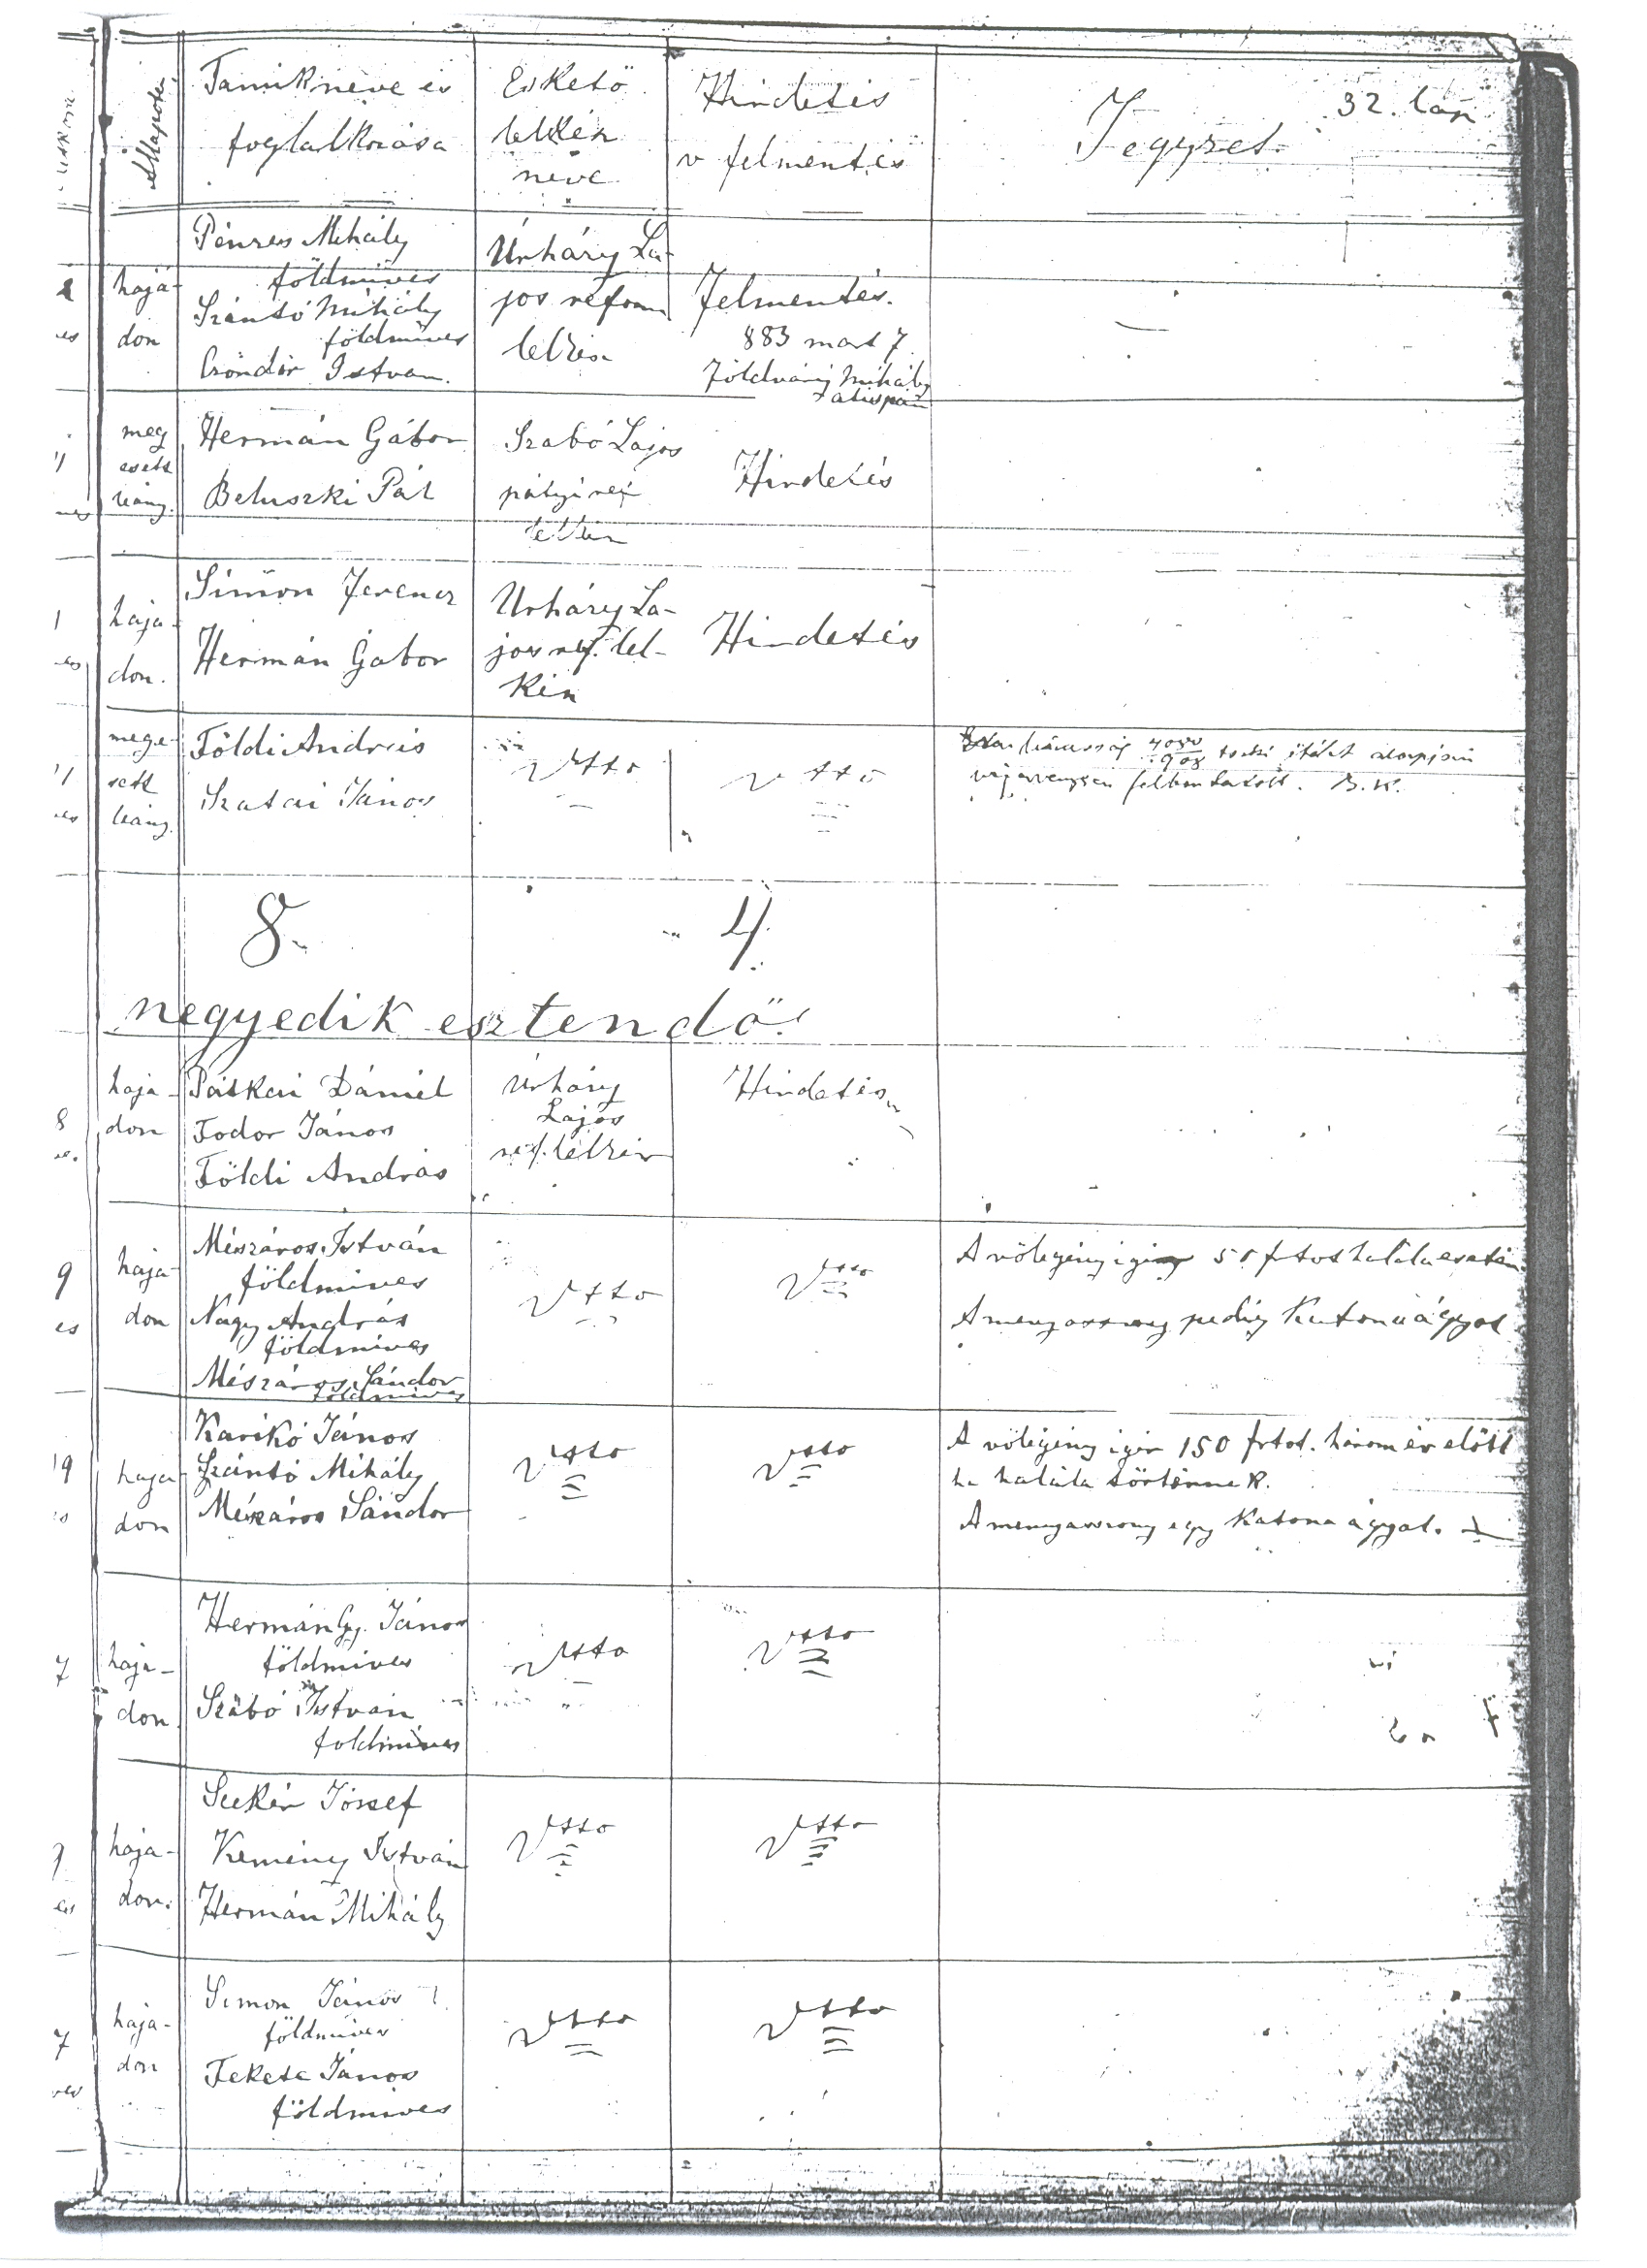 Állapota
Tanuk neve és
foglalkozása
Eskető
lelkén
neve
Hirdetés
v felmentés
Jegyzet.
32. lap
hajá-
don
Pénzes Mihály
földmüves
Szántó Mihály
földmüves
Csöndör István.
Úrháry La-
jos reform
lelkén
Felmentés.
883 mart 7
Földváry Mihály
alispán
meg
esett
leány.
Hermán Gábor
Beluszki Pál
Szabó Lajos
pátyi ref
lelkén
Hirdetés
haja-
don.
Simon Ferencz
Hermán Gábor
Urháry La-
jos ref. lel-
kén
Hirdetés
mege-
sett
leány.
Földi András
Szatai János
Vtto
Vtto
házasság 4080/908 itélet alapján
felbontatott. B. K.
8.
4.
negyedik esztendő!
haja-
don
Pátkai Dániel
Fodor János
Földi András
Urháry
Lajos
ref. lelkén
Hirdetés
9
haja-
don
Mészáros István
földmives
Nagy András
földmives
Mészáros Sándor
földmives
Vtto
Vtto
A völegény igér 50 frtot halála esetén
A menyasszony pedig Katona ágyat
19
haja-
don
Karikó János
Szántó Mihály
Mészáros Sándor
Vtto
Vtto
A völegény igér 150 frtot. három év előtt
ha halála történnek.
A menyasszony egy Katona ágyat.
7
haja-
don
Hermán Gy. János
földmives
Szabó István
földmives
Vtto
Vtto
haja-
don.
Szekér József
Kemény István
Hermán Mihály
Vtto
Vtto
7
haja-
don
Simon János
földmives
Fekete János
földmives
Vtto
Vtto